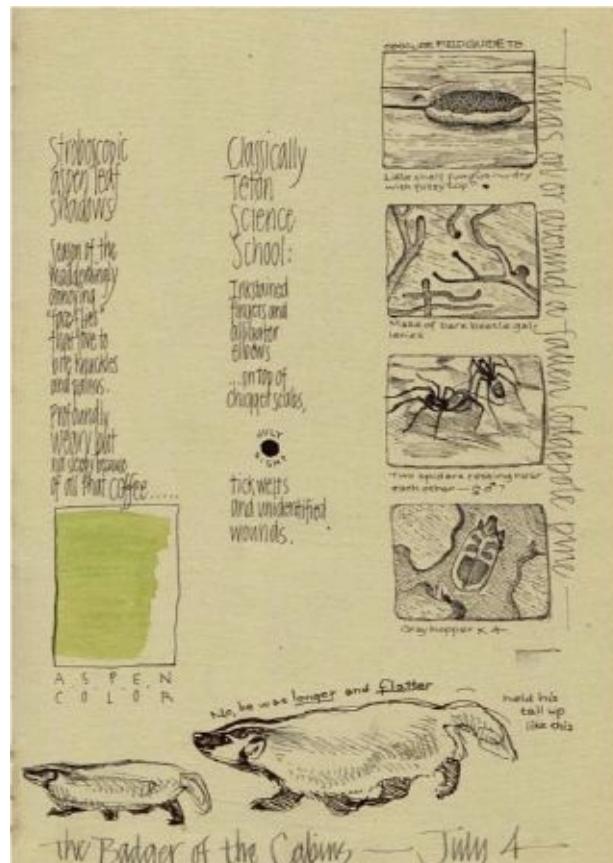 Stroboscopic
aspen leaf
shadows
Season of the
maddeningly
annoying
"face flies"
that love to
bite knuckles
and
Profoundly
weary but
not sleepy because
of all that coffee.....
A S P E N
C O L O R
Classically
Teton
Science
School:
Inkstained
fingers and
elbows
...on top of
chigger scabs,
JULY
EIGHT
tick welts
and unidentified
wounds.
FIELDGUIDE TO
Things on or around a fallen lodgepole pine
Little shelf fungus nu dry
with fuzzy top
Maze of bark beetle gal-
leries
Two spiders resting near
each other — ♀ ♂ ?
Grayhopper x 4
No, he was longer and flatter
held his
tail up
like this
the Badger of the Cabins — July 4